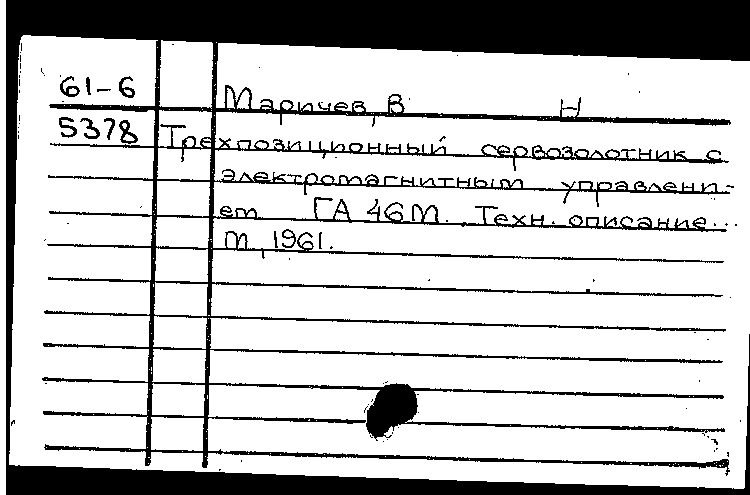 61-6 Маричев, В Н
5378 Трехпозиционный сервозолотник с
электромагнитным управлени-
ем ГА 46М. Техн. описание...
М, 1961.